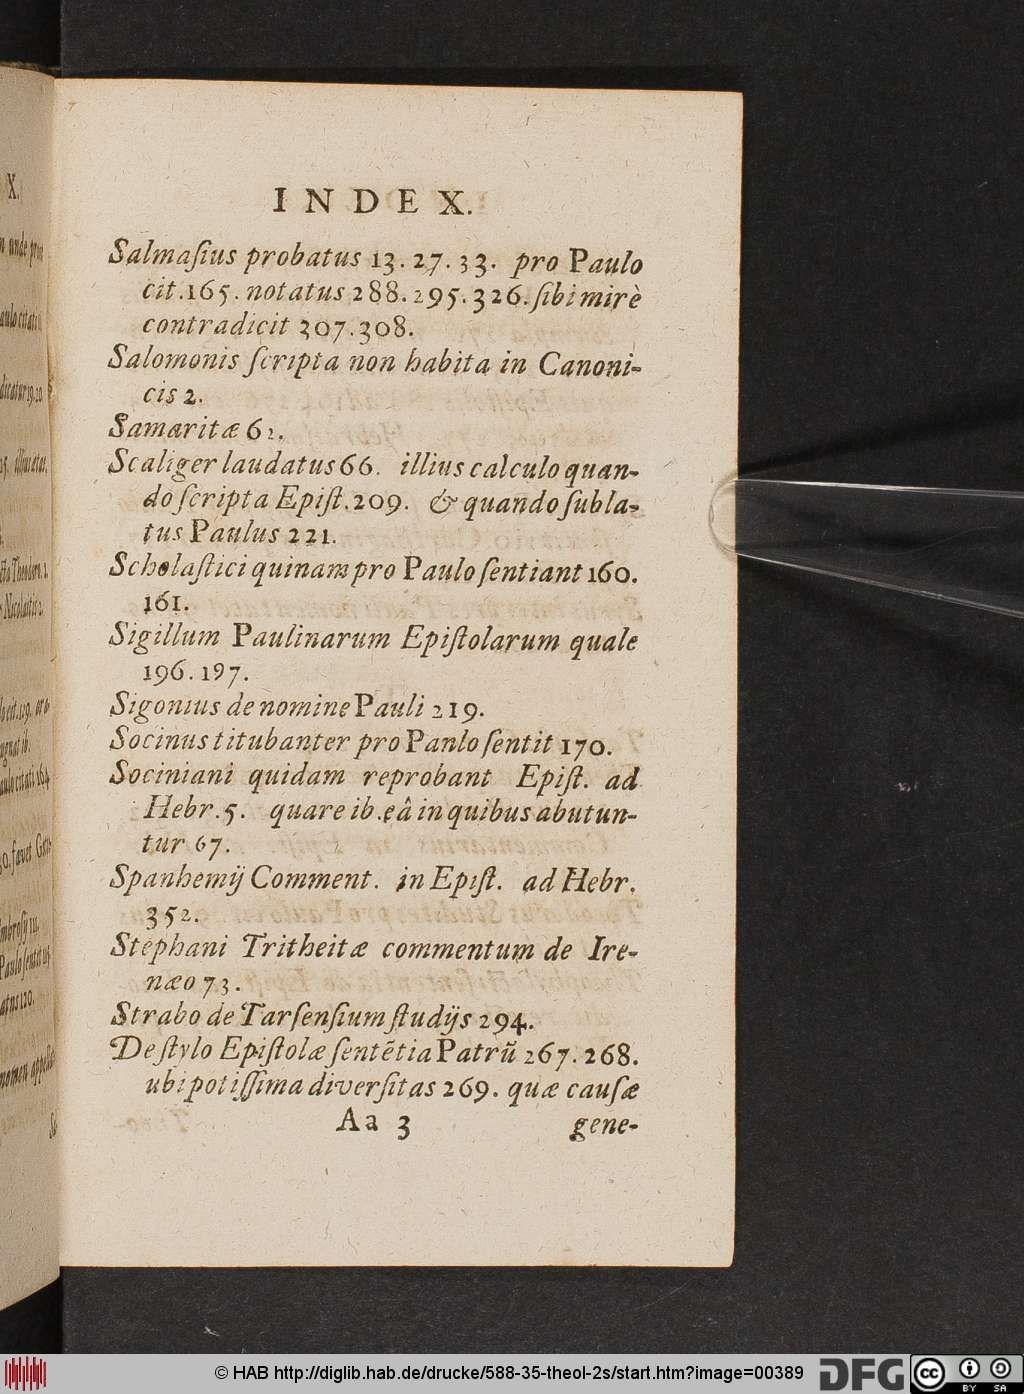 INDEX.
Salmaſius probatus 13.27.33. pro Paulo
cit.165. notatus 288.295.326. ſibi mirè
contradicit 307.308.
Salomonis ſcripta non habita in Canoni-
cis 2.
Samaritæ 62.
Scaliger laudatus 66. illius calculo quan-
do ſcripta Epiſt.209. & quando ſubla-
tus Paulus 221.
Scholaſtici quinam pro Paulo ſentiant 160.
161.
Sigillum Paulinarum Epiſtolarum quale
196.197.
Sigonius de nomine Pauli 219.
Socinus titubanter pro Panlo ſentit 170.
Sociniani quidam reprobant Epiſt. ad
Hebr.5. quare ib. eâ in quibus abutun-
tur 67.
Spanhemij Comment. in Epiſt. ad Hebr.
352.
Stephani Tritheitæ commentum de Ire-
næo 73.
Strabo de Tarſenſium ſtudijs 294.
De ſtylo Epiſtolæ ſentẽtia Patrũ 267.268.
ubi potiſſima diverſitas 269. quæ cauſæ
Aa 3 gene-
© HAB http://diglib.hab.de/drucke/588-35-theol-2s/start.htm?image=00389
DFG
cc BY SA